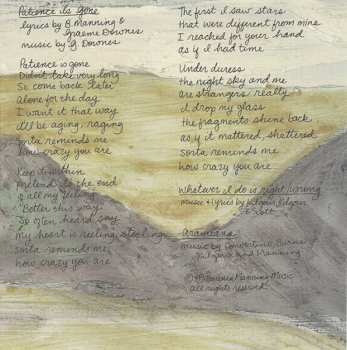 Patience is gone
lyrics by B. Manning &
Graeme Downes
music by G. Downes
Patience is gone
Didn't take very long
So come back later
Alone for the day
I want it that way
I'll be aging, raging
Sorta reminds me
how crazy you are
Keep it within
Pretend to the end
of all my feeling
"Better this way"
So often heard, say
my heart is reeling, stealing
sorta reminds me
how crazy you are
The first I saw stars
that were different from mine
I reached for your hand
as if I had time
Under duress
the night sky and me
are strangers really
I drop my glass
the fragments shine back
as if it mattered, shattered
sorta reminds me
how crazy you are
Whatever I do is right wrong
music & lyrics by Kilgour, Kilgour
& Scott
music by Convertino, Burns
Kilgour and Manning
Manning Music
all rights reserved